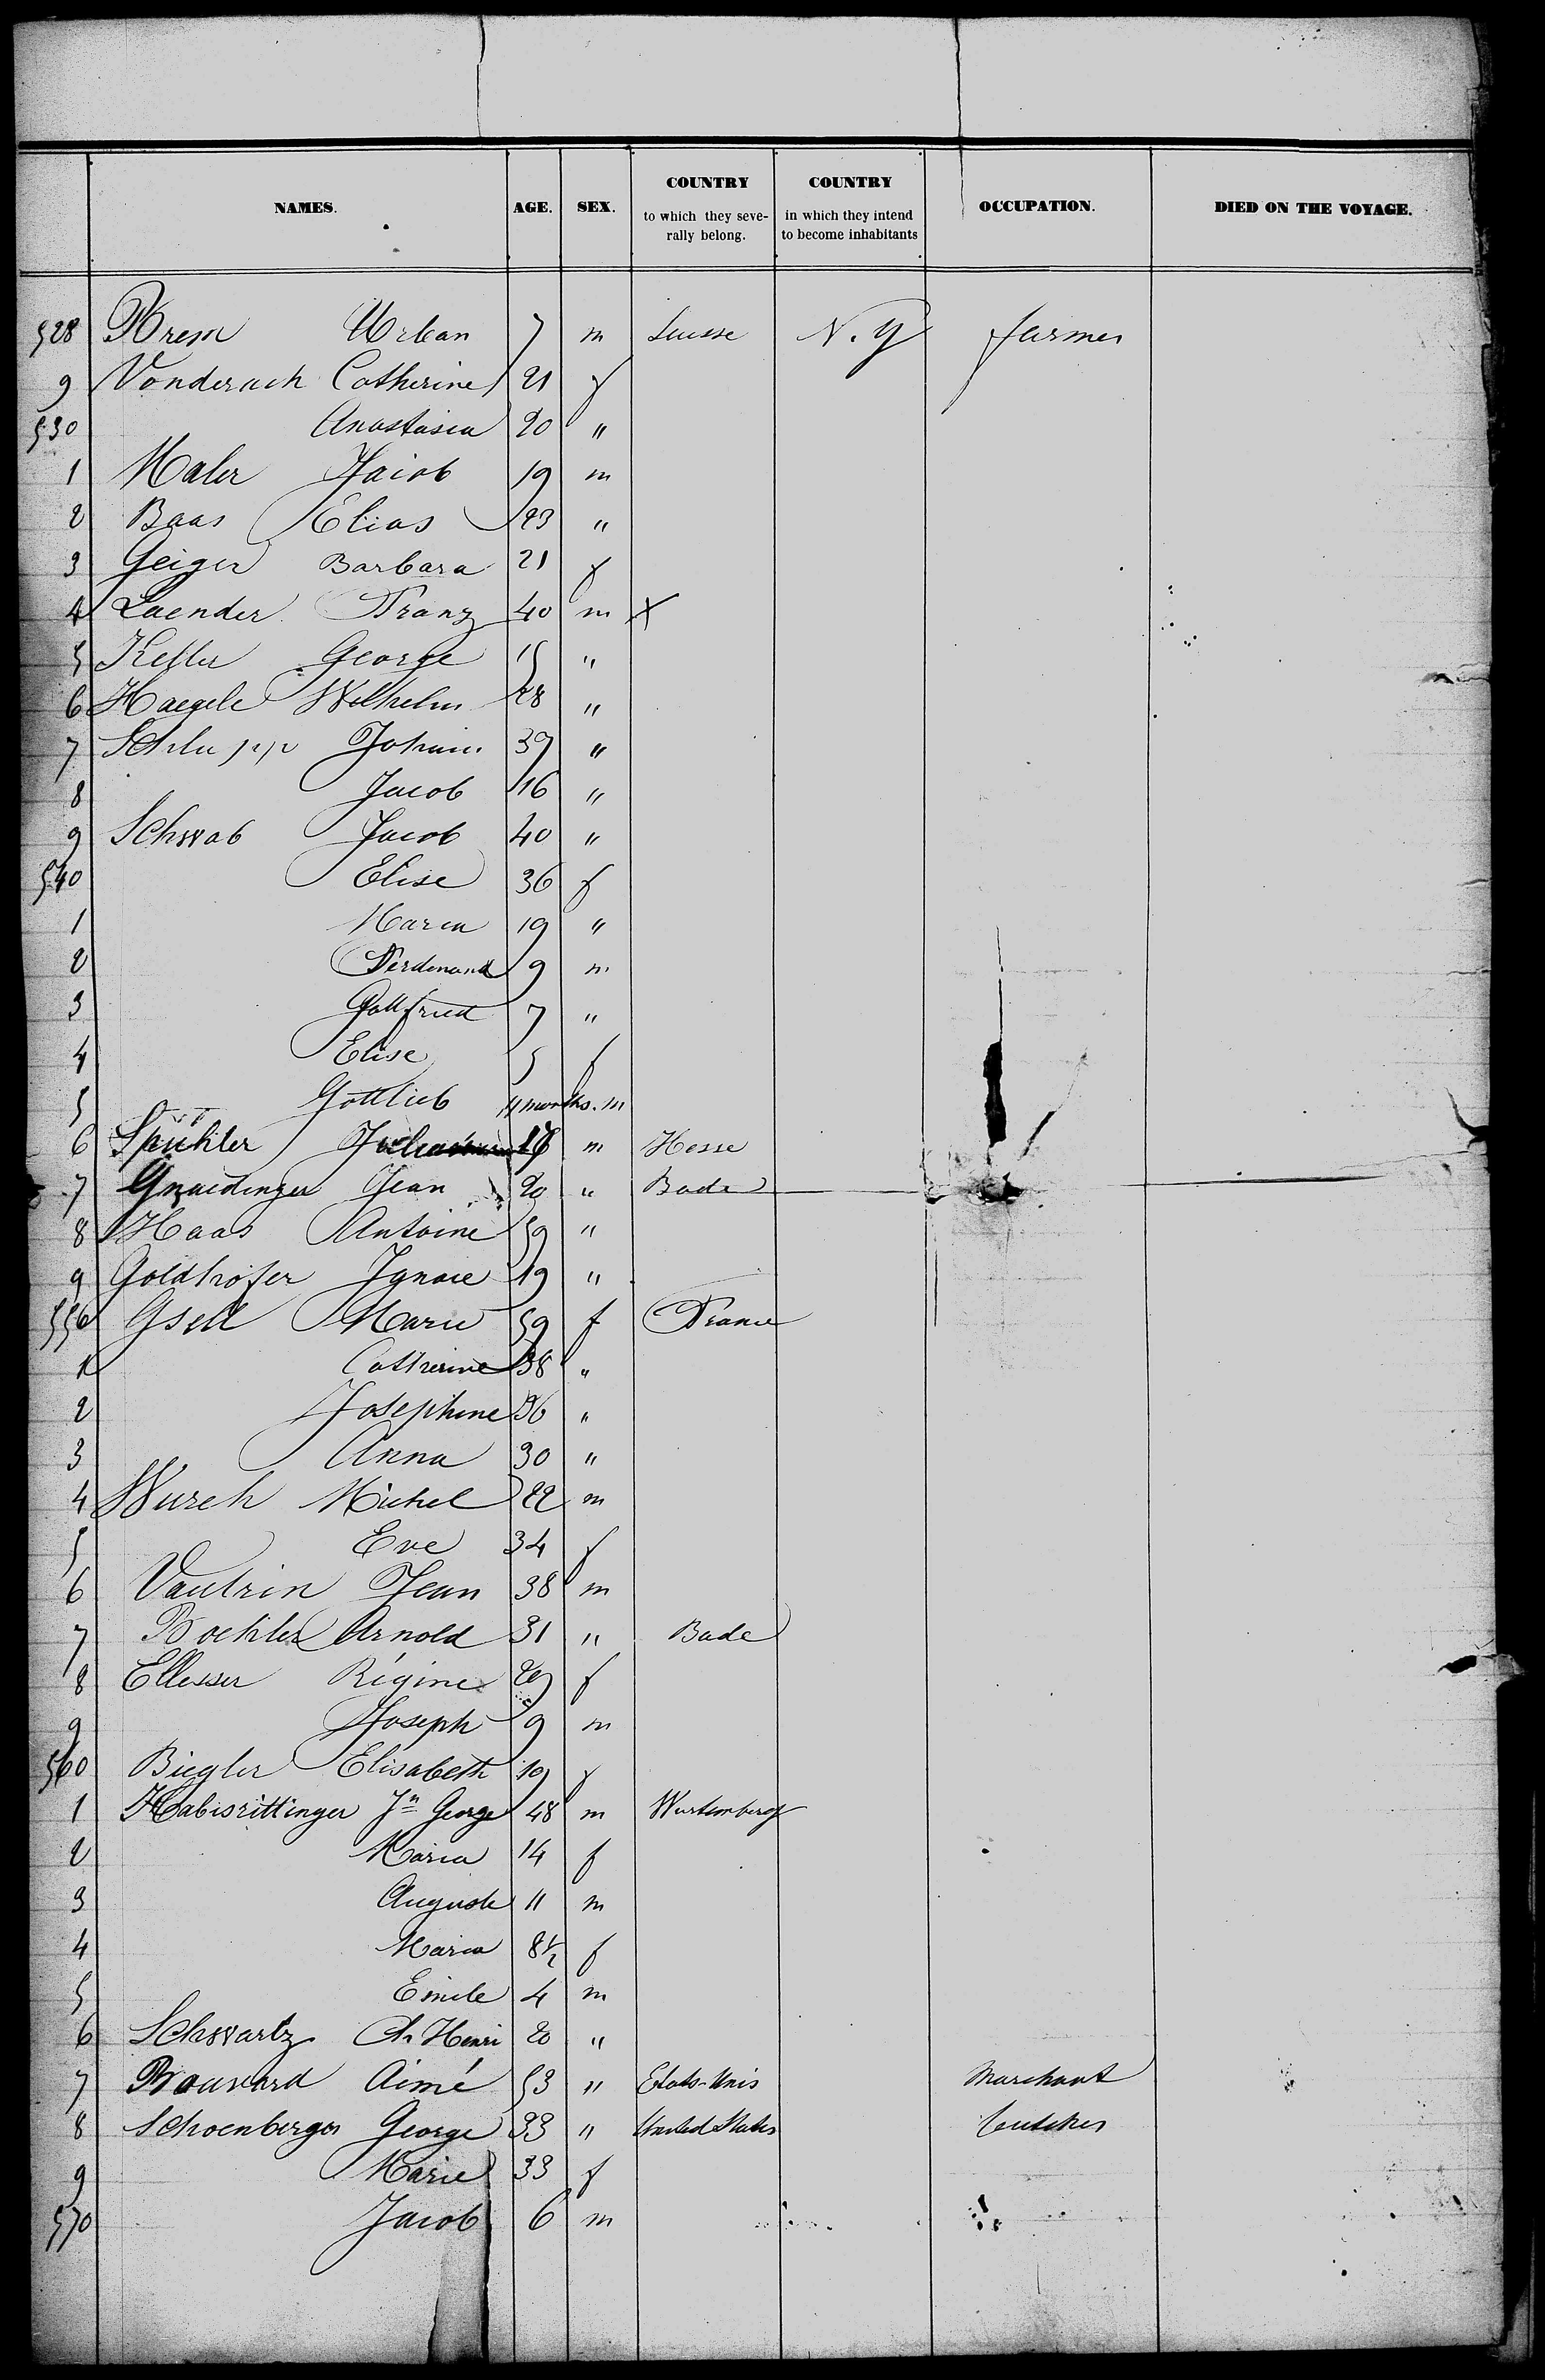 NAMES. AGE. SEX. COUNTRY to which they seve-rally belong. COUNTRY in which they intend to become inhabitants OCCUPATION. DIED ON THE VOYAGE.
528 Brem Urban 7 m Suisse N. Y farmer
9 Vonderach Catherine 21 f
530 Anastasia 20 "
1 Maler Jacob 19 m
2 Baas Elias 23 "
3 Geiger Barbara 21 f
4 Laender Franz 40 m X
5 Keller George 15 "
6 Haegele Wilhelm 28 "
7 Schlupp Johann 39 "
8 Jacob 16 "
9 Schwab Jacob 40 "
540 Elise 36 f
1 Maria 19 "
2 Ferdinand 9 m
3 Gottfried 7 "
4 Elise 5 f
5 Gottlieb 11 months. m
6 Spühler m Hesse
7 Gnaedinger Jean 20 " Bade
8 Haas Antoine 59 "
9 Goldhofer Ignace 19 "
550 Gsell Marie 59 f France
1 Catherine 38 "
2 Josephine 36 "
3 Anna 30 "
4 Wurch Michel 22 m
5 Eve 34 f
6 Vautrin Jean 38 m
7 Boehler Arnold 31 " Bade
8 Ellesser Régine 29 f
9 Joseph 9 m
560 Biegler Elisabeth 19 f
1 Habisrittinger Jn George 48 m Wurtemberg
2 Maria 14 f
3 Auguste 11 m
4 Maria 8½ f
5 Emile 4 m
6 Schwartz Ch. Henri 20 "
7 Bouvard Aimé 53 " Etats-Unis Marchant
8 Schoenberger George 33 " United States butcher
9 Marie 33 f
570 Jacob 6 m